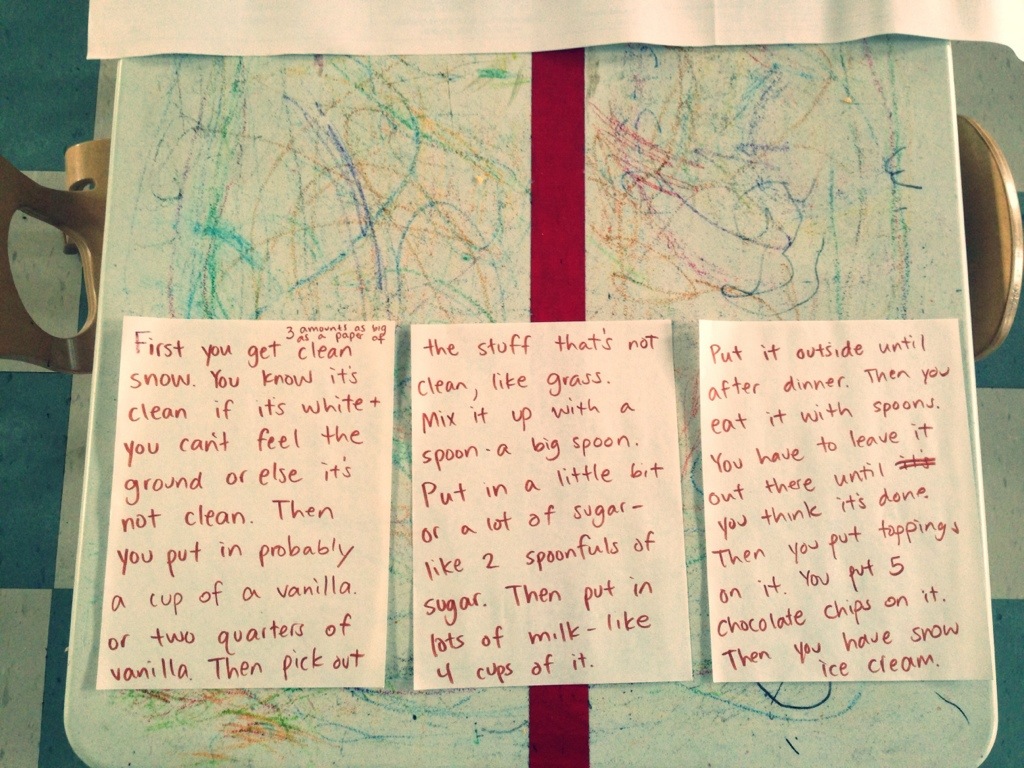 3 amounts as big
as a paper of
First you get clean
snow. You know it's
clean if it's white +
you can't feel the
ground or else it's
not clean. Then
you put in probably
a cup of a vanilla.
or two quarters of
vanilla. Then pick out
the stuff that's not
clean, like grass.
Mix it up with a
spoon - a big spoon.
Put in a little bit
or a lot of sugar -
like 2 spoonfuls of
sugar. Then put in
lots of milk - like
4 cups of it.
Put it outside until
after dinner. Then you
eat it with spoons.
You have to leave it
out there until it's
you think it's done.
Then you put toppings
on it. You put 5
chocolate chips on it.
Then you have snow
ice cream.